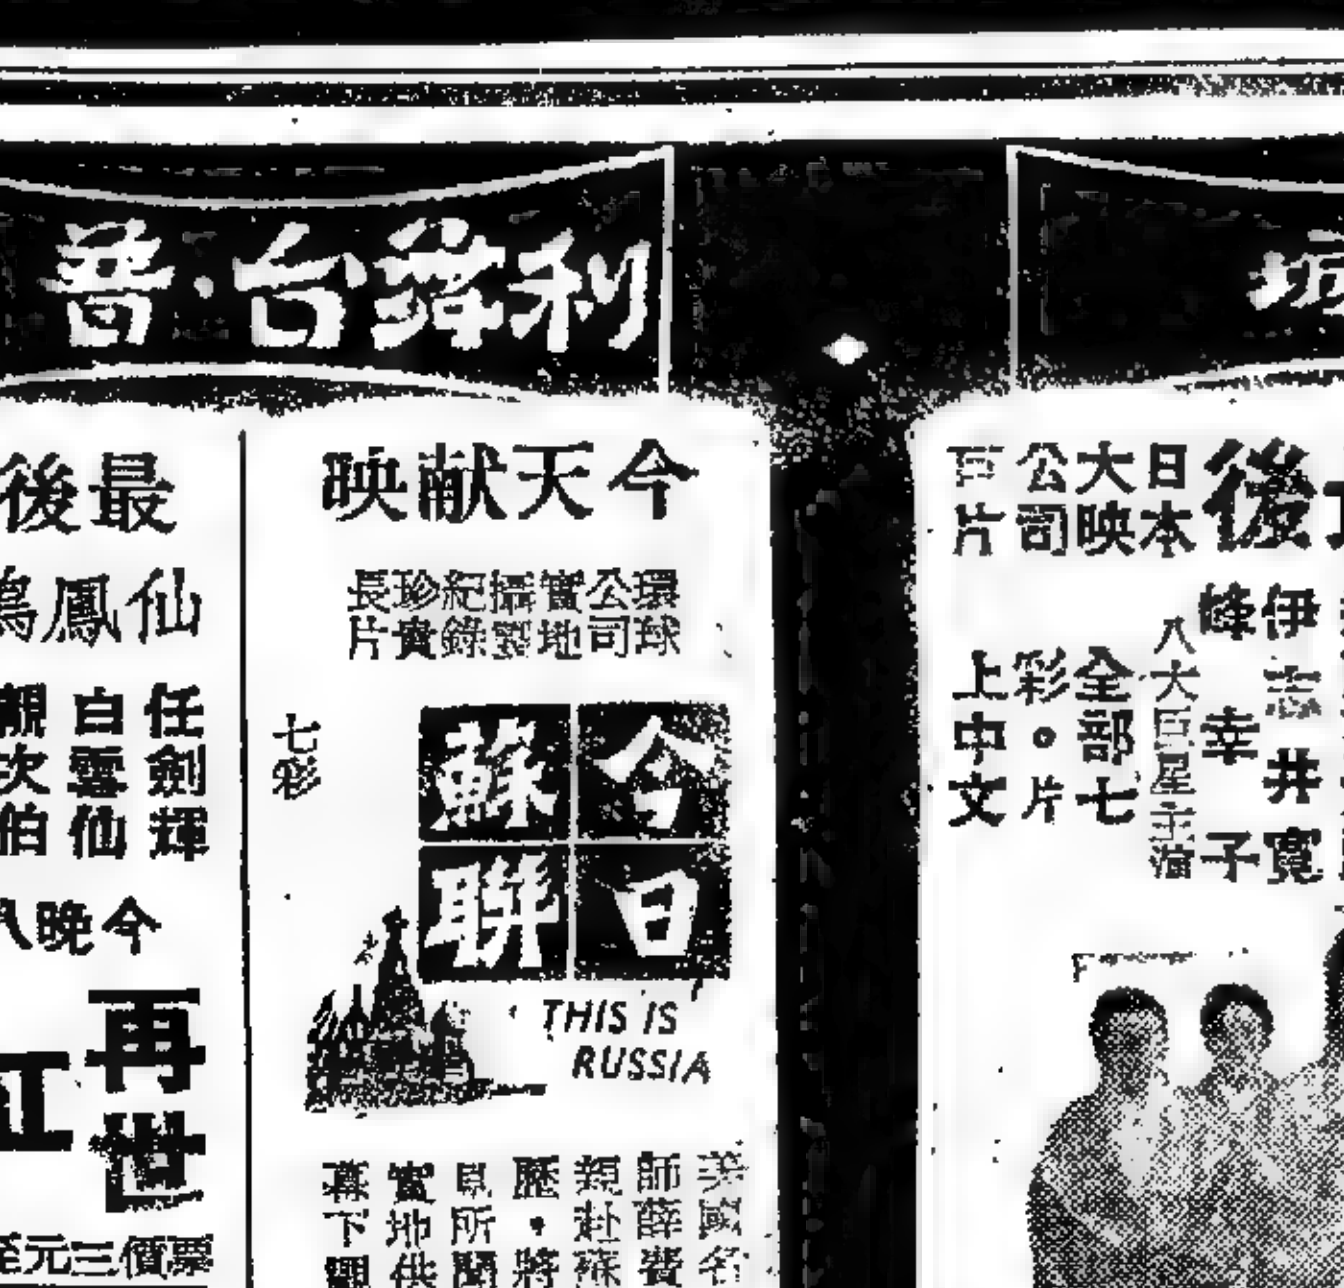 利舞台·普
坊
今天献映
環球
公司
實地
攝製
紀錄
珍貴
長片
七彩
今日
蘇聯
THIS IS
RUSSIA
美國名
師薛費
親赴蘇
歷·將
見所聞
實地供
幕下觀
最後
仙鳳鳴
任劍輝
白雪仙
靚次伯
今晚八
再世
紅
票價三元至
後
日本
大映
公司
巨片
伊志井寬
峰幸子
八大巨星主演
全部七
彩。片
上中文